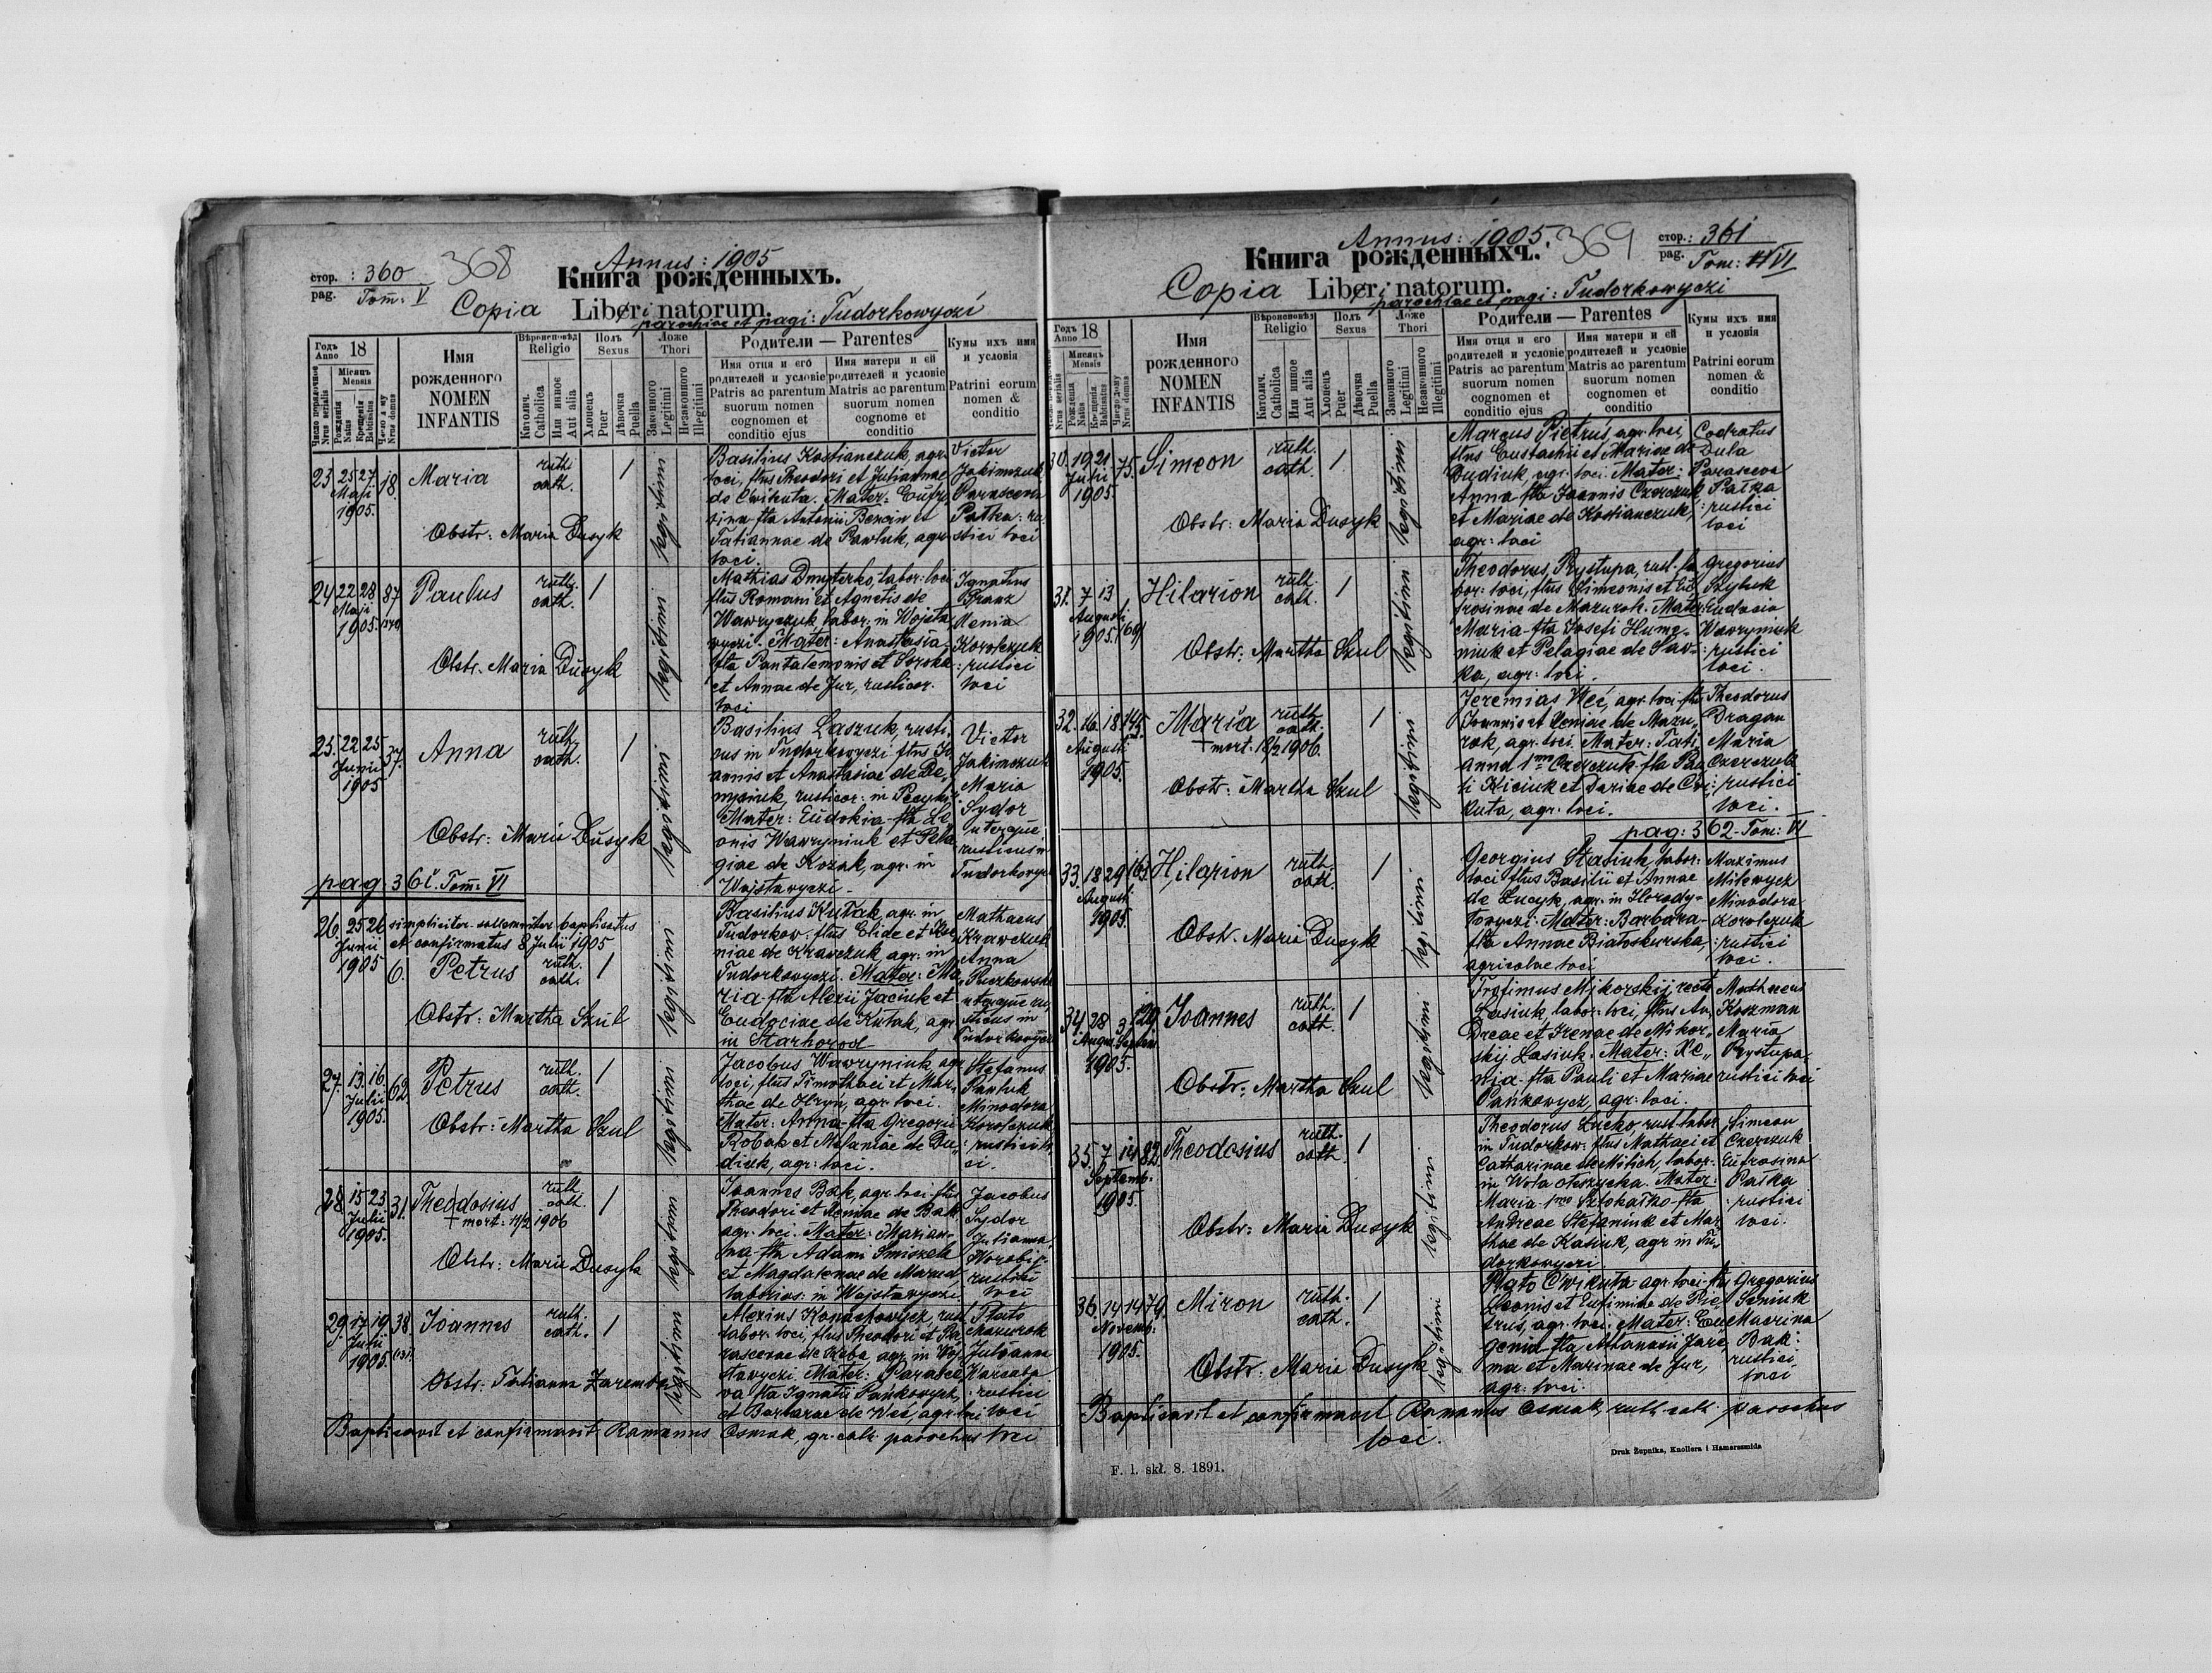 Annus: 1905
стор.: 360 368
pag. Tom: V
Книга рожденныхъ.
Copia Liber natorum.
parochiae et pagi: Tudorkowyczi
Годъ Anno 18
Число порядочное Nrus serialis
Мѣсяцъ Mensis
Рожденія Natus
Крещенія Babtisatus
Nrus domus
Имя рожденного NOMEN INFANTIS
Вѣроисповѣд Religio
Католич. Catholica
Или иное Aut alia
Полъ Sexus
Хлопецъ Puer
Дѣвочка Puella
Ложе Thori
Законного Legitimi
Незаконного Illegitimi
Родители — Parentes
Имя отца и его родителей и условіе Patris ac parentum suorum nomen cognomen et conditio ejus
Имя матери и ей родителей и условіе Matris ac parentum suorum nomen cognomen et conditio
Кумы ихъ имя и условія Patrini eorum nomen & conditio
23 25 27 Maji 1905. 18. Maria ruth. cath. 1 legitimi
Obstr: Maria Dusyk
Basilius Kostianczuk, agr.
loci, flius Theodori et Juliannae
de Cwikuta. Mater: Eufro
sina fta Antonii Bencin et
Tatiannae de Pawluk, agr.
loci.
Victor
Jakimczuk
Parasceva
Patka: ru
stici loci
24 22 28 Maji 1905. 87 Paulus ruth. cath. 1 legitimi
Obstr: Maria Dusyk
Mathias Dmyterko, labor. loci
flus Romani et Agnetis de
Wawryczuk, labor. in Wojsta
wyczi. Mater: Anastasia
fta Pantalemonis et Sorska
et Annae de Jur, rusticor.
loci
Ignatius
Branz
Xenia
Korolczuk
: rustici
loci
25. 22 25 Junii 1905 37. Anna ruth. cath. 1 legitimi
Obstr: Maria Dusyk
Basilius Laszuk, rusti,
cus in Tudorkowyczi flus Jo
annis et Anastasiae de De,
mianiuk, rusticor: in
Mater: Eudokia fta Le
onis Wawryniuk et Pela
giae de Kozak, agr. in
Wojstawyczi.
Victor
Jakimczuk
Maria
Sydor
uterque
rusticus in
Tudorkowycz
pag: 361. Tom: VI
26. 25 26 Junii 1905 6. simpliciter. sollemniter baptisatus
et confirmatus 8 Julii 1905
Petrus ruth. cath. 1 legitimi
Obstr: Martha Szul
Basilius Kutak, agr. in
Tudorkow: flus Elide et Xe
niae de Krawczuk, agr: in
Tudorkowyczi. Mater: Ma
ria fta Alexii Jaciuk et
Eudociae de Kutak, agr.
in Starhorod
Mathaeus
Krawczuk
Anna
Raczkowska
uterque ru,
sticus in
Tudorkowycz
27. 13. 16. Julii 1905. 62. Petrus ruth. cath. 1 legitimi
Obstr: Martha Szul
Jacobus Wawryniuk agr
loci, flus Timothaei et Mar
thae de Hron, agr: loci.
Mater: Anna fta Gregorii
Robak et Malaniae de Du,
diuk, agr: loci.
Stefanus
Pawluk
Minodora
Korolczuk
: rustici lo,
ci.
28. 15 23 Julii 1905. 31. Theodosius ruth. cath. 1 legitimi
† mort: 11/2 1906
Obstr: Maria Dusyk
Joannes Bak, agr. loci flus
Theodori et Xeniae de Bak
agr. loci. Mater: Marian
na fta Adami Smiszek
et Magdalenae de Mazur
laborios: in Wojstawyczi
Jacobus
Sydor
Julianna
Worobij
rustici
loci
29. 17 19 Julii 1905. 38. Joannes ruth. cath. 1 legitimi
Obstr: Tatianna Zaremba
Alexius Konachowycz, rust
labor. loci, flus Theodori et Pa
rascevae de Koba, agr. in Woj
stawyczi Mater: Parasce
va fta Ignatii Pankowycz,
et Barbarae de Weś, agr. loci
Plato
Mazurok
Julianna
Karcaba
: rustici
loci
Baptisavit et confirmavit Romanus Osmak, gr. cath. parochus loci
Annus: 1905. 369 стор.: 361
pag. Tom: VI
Книга рожденныхъ.
Copia Liber natorum.
parochiae et pagi: Tudorkowyczi
Годъ Anno 18
Мѣсяцъ Mensis
Рожденія Natus
Крещенія Babtisatus
Nrus domus
Имя рожденного NOMEN INFANTIS
Вѣроисповѣд Religio
Католич. Catholica
Или иное Aut alia
Полъ Sexus
Хлопецъ Puer
Дѣвочка Puella
Ложе Thori
Законного Legitimi
Незаконного Illegitimi
Родители — Parentes
Имя отца и его родителей и условіе Patris ac parentum suorum nomen cognomen et conditio ejus
Имя матери и ей родителей и условіе Matris ac parentum suorum nomen cognomen et conditio
Кумы ихъ имя и условія Patrini eorum nomen & conditio
30. 19 21 Julii 1905. 75. Simeon ruth. cath. 1 legitimi
Obstr: Maria Dusyk
Marcus Pietruś, agr. loci,
flus Eustachii et Mariae de
Dudiuk, agr. loci. Mater:
Anna fta Joannis Czerczuk
et Mariae de Kostianczuk,
agr: loci
Codratus
Dula
Parasceva
Patka
: rustici
loci
31. 7 13 Augusti 1905. Hilarion ruth. cath. 1 legitimi
Obstr: Martha Szul
Theodorus, Prystupa, rust. la
bor: loci, flus Simeonis et Eu
frosinae de Mazurok. Mater
Maria fta Josefi Hume,
niuk et Pelagiae de Sav
ka, agr: loci.
Gregorius
Szyluk
Eudocia
Wawryniuk
: rustici
loci.
32. 16 18 Augusti 1905. 145. Maria ruth. cath. 1 legitimi
† mort: 18/2 1906.
Obstr: Martha Szul
Jeremias Weś, agr. loci flus
Joannis et Xeniae de Mazu,
rok, agr. loci. Mater: Tati
anna 1mo Czerczuk fta Pau
li Kiciuk et Dariae de Cwi
kuta, agr. loci.
Theodorus
Dragan
Maria
Czerczuk
: rustici
loci.
pag: 362. Tom: VI
33. 18 29 Augusti 1905. Hilarion ruth. cath. 1 legitimi
Obstr. Maria Dusyk
Georgius Stasiuk, labor:
loci flus Basilii et Annae
de Lucyk, agr. in Horody
lowyczi. Mater: Barbara
fta Annae Białoskurska,
agricolae loci
Maximus
Milewycz
Minodora
Korolczuk
: rustici
loci.
34. 28 3 August. Septem. 1905. 129. Joannes ruth. cath. 1 legitimi
Obstr: Martha Szul
Trofimus Mikorskij, recte
Lasiuk, labor. loci, flus An,
dreae et Irenae de Mikor,
skij Lasiuk. Mater: Xe,
nia fta Pauli et Mariae
Pańkowycz, agr: loci.
Mathaeus
Koszman
Maria
Prystupa
rustici loci
35. 7 14 Septemb. 1905. 82. Theodosius ruth. cath. 1 legitimi
Obstr: Maria Dusyk
Theodorus Lucko, rust. labor
in Tudorkow: flus Mathaei et
Catharinae de Milich, labor.
in Wola otoszycka. Mater:
Maria 1mo Sztokałko fta
Andreae Stefaniuk et Mar
thae de Kasiuk, agr in Tu,
dorkowyczi
Simeon
Czerczuk
Eufrosina
Paska
: rustici
loci.
36. 14 14 Novemb. 1905. 79. Miron ruth. cath. 1 legitimi
Obstr: Maria Dusyk
Plato Cwikuta agr. loci flus
Leonis et Eufimiae de Pie,
trus, agr. loci. Mater: Eu
genia fta Athanasii Jare
ma et Marinae de Jur,
agr: loci.
Gregorius
Seniuk
Macrina
Bak:
rustici
loci
Baptisavit et confirmavit Romanus Osmak, ruth. cath. parochus
loci.
F. l. skł. 8. 1891.
Druk Żupnika, Knollera i Hamerszmida